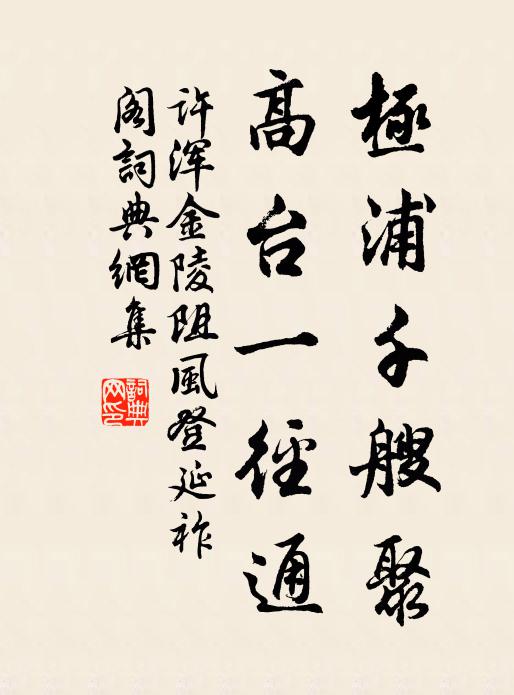 極浦千艘聚
高台一徑通
许渾金陵阻風登延祚
阁詞典網集
詞典
网印